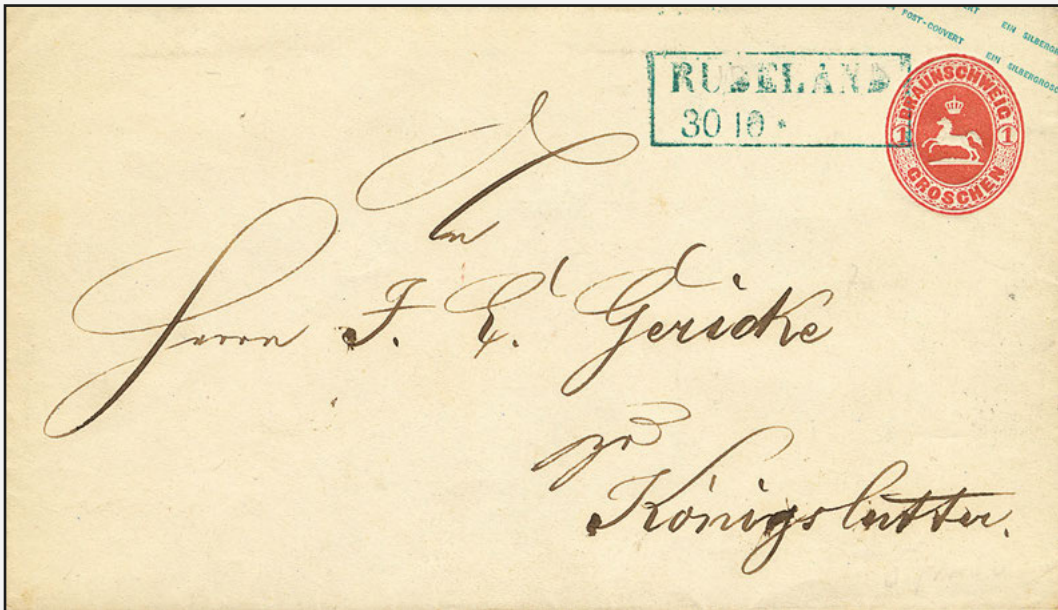 POST-COUVERT EIN SILBERGROSC
EIN SILBERGR
RUBELAND
30 10 *
BRAUNSCHWEIG
1 1
GROSCHEN
An
Herrn F. E. Gericke
zu
Königslutter.